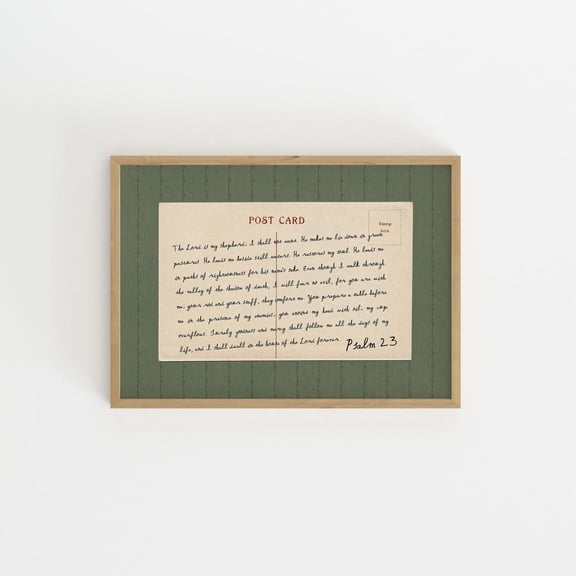 POST CARD
Stamp
here
The Lord is my shepherd; I shall not want. He makes me lie down in green
pastures. He leads me beside still waters. He restores my soul. He leads me
in paths of righteousness for his name's sake. Even though I walk through
the valley of the shadow of death, I will fear no evil, for you are with
me; your rod and your staff, they comfort me. You prepare a table before
me in the presence of my enemies; you anoint my head with oil; my cup
overflows. Surely goodness and mercy shall follow me all the days of my
life, and I shall dwell in the house of the Lord forever.
Psalm 23